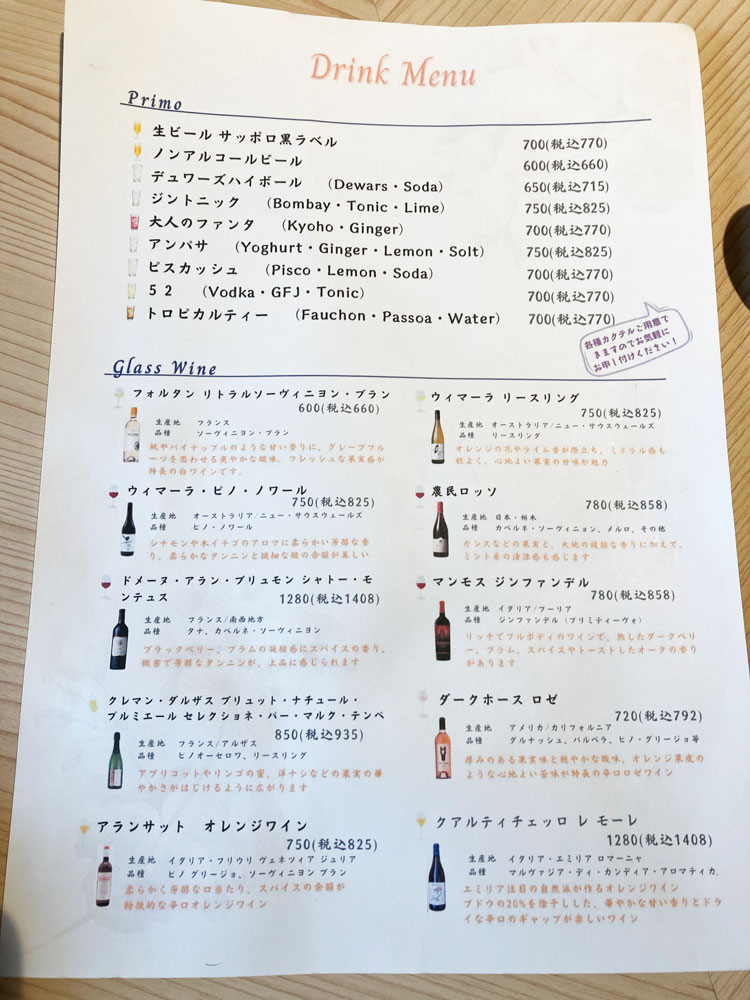 Drink Menu
Primo
生ビール サッポロ黒ラベル 700(税込770)
ノンアルコールビール 600(税込660)
デュワーズハイボール (Dewars・Soda) 650(税込715)
ジントニック (Bombay・Tonic・Lime) 750(税込825)
大人のファンタ (Kyoho・Ginger) 700(税込770)
アンバサ (Yoghurt・Ginger・Lemon・Solt) 750(税込825)
ピスカッシュ (Pisco・Lemon・Soda) 700(税込770)
52 (Vodka・GFJ・Tonic) 700(税込770)
トロピカルティー (Fauchon・Passoa・Water) 700(税込770)
各種カクテルご用意で
きますのでお気軽に
お申し付けください!
Glass Wine
フォルタン リトラルソーヴィニヨン・ブラン
600(税込660)
生産地 フランス
品種 ソーヴィニヨン・ブラン
桃やパイナップルのような甘い香りに、グレープフル
ーツを思わせる爽やかな酸味。フレッシュな果実感が
特長の白ワインです。
ウィマーラ リースリング
750(税込825)
生産地 オーストラリア/ニュー・サウスウェールズ
品種 リースリング
オレンジの花やライム香が際立ち、ミネラル感も
程よく、心地よい果実の甘味が魅力
ウィマーラ・ピノ・ノワール
750(税込825)
生産地 オーストラリア/ニュー・サウスウェールズ
品種 ピノ・ノワール
シナモンや木イチゴのアロマに柔らかい芳醇な香
り。柔らかなタンニンと繊細な酸の余韻が美しい
農民ロッソ
780(税込858)
生産地 日本・栃木
品種 カベルネ・ソーヴィニョン、メルロ、その他
カシスなどの果実と、大地の複雑な香りに加えて、
ミント系の清涼感も感じます
ドメーヌ・アラン・ブリュモン シャトー・モ
ンテュス 1280(税込1408)
生産地 フランス/南西地方
品種 タナ、カベルネ・ソーヴィニヨン
ブラックベリー、プラムの凝縮感にスパイスの香り。
緻密で芳醇なタンニンが、上品に感じられます
マンモス ジンファンデル
780(税込858)
生産地 イタリア/プーリア
品種 ジンファンデル(プリミティーヴォ)
リッチでフルボディのワインで、熟したダークベリ
ー、プラム、スパイスやトーストしたオークの香り
があります
クレマン・ダルザス ブリュット・ナチュール・
プルミエール セレクショネ・パー・マルク・テンペ
850(税込935)
生産地 フランス/アルザス
品種 ピノオーセロワ、リースリング
アプリコットやリンゴの蜜、洋ナシなどの果実の華
やかさがはじけるように広がります
ダークホース ロゼ
720(税込792)
生産地 アメリカ/カリフォルニア
品種 グルナッシュ、バルベラ、ピノ・グリージョ等
厚みのある果実味と軽やかな酸味。オレンジ果皮の
ような心地よい苦味が特長の辛口ロゼワイン
アランサット オレンジワイン
750(税込825)
生産地 イタリア・フリウリ ヴェネツィア ジュリア
品種 ピノ グリージョ、ソーヴィニヨン ブラン
柔らかく芳醇な口当たり、スパイスの余韻が
特徴的な辛口オレンジワイン
クアルティチェッロ レ モーレ
1280(税込1408)
生産地 イタリア・エミリア ロマーニャ
品種 マルヴァジア・ディ・カンディア・アロマティカ.
エミリア注目の自然派が作るオレンジワイン
ブドウの20%を除干しした、華やかな甘い香りとドラ
イな辛口のギャップが楽しいワイン